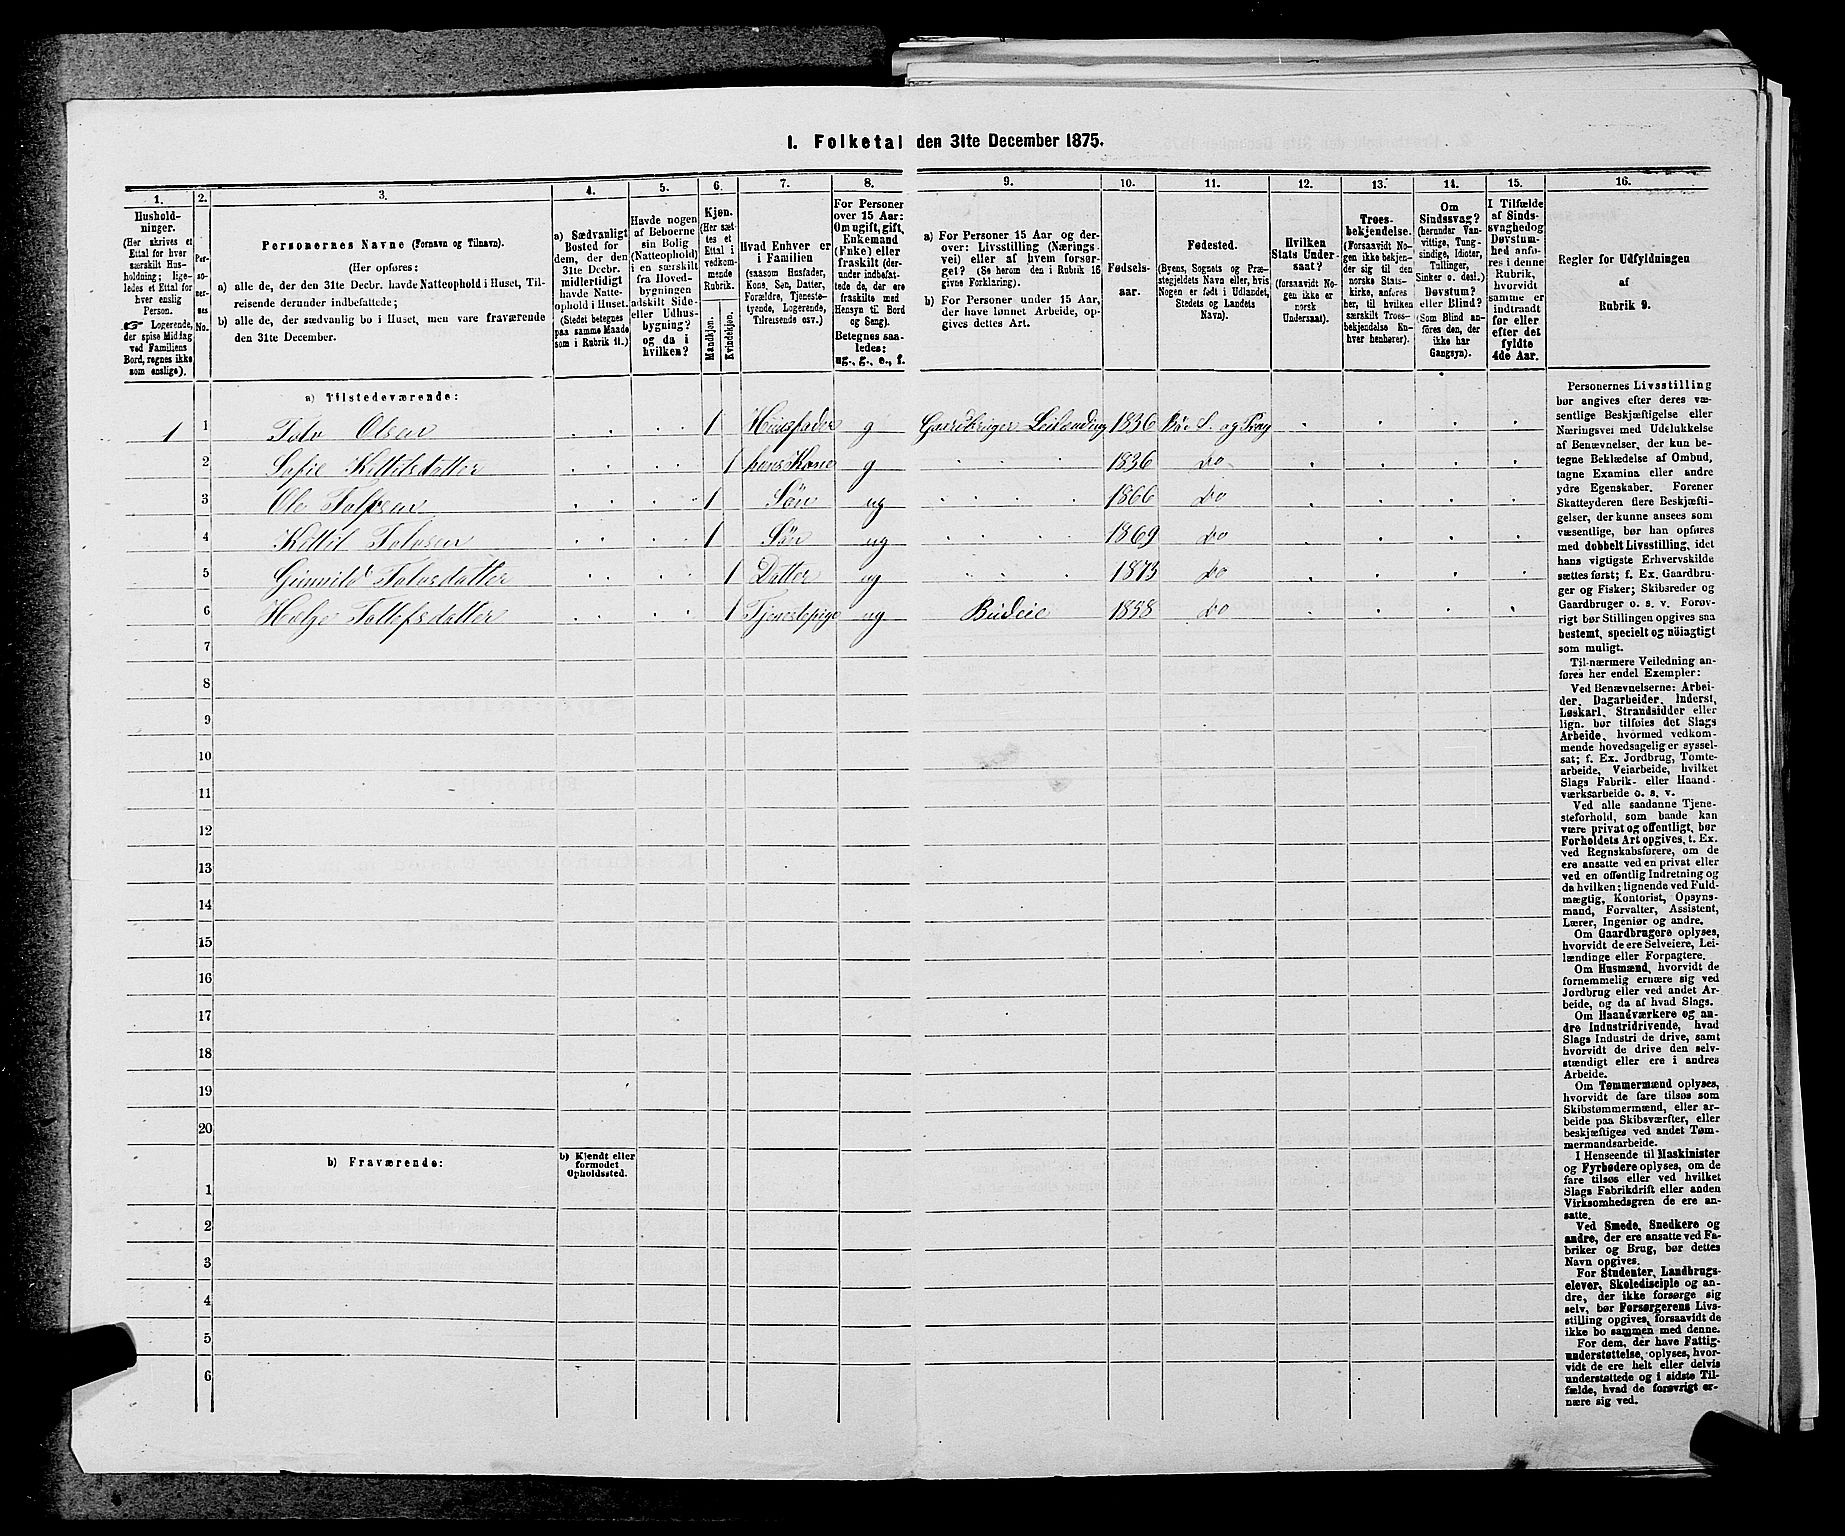 I. Folketal den 31te December 1875.
1.
Hushold-
ninger.
(Her skrives et
Ettal for hver
særskilt Hus-
holdning; lige-
ledes et Ettal for
hver enslig
Person.
☞ Logerende,
der spise Middag
ved Familiens
Bord, regnes ikke
som enslige).
2.
Per-
so-
ner-
nes
No.
3.
Personernes Navne (Fornavn og Tilnavn).
(Her opføres:
a) alle de, der den 31te Decbr. havde Natteophold i Huset, Til-
reisende derunder indbefattede;
b) alle de, der sædvanlig bo i Huset, men vare fraværende
den 31te December.
4.
a) Sædvanligt
Bosted for
dem, der den
31te Decbr.
midlertidigt
havde Natte-
ophold i Huset.
(Stedet betegnes
paa samme Maade
som i Rubrik 11.)
5.
Havde nogen
af Beboerne
sin Bolig
(Natteophold)
i en særskilt
fra Hoved-
bygningen
adskilt Side-
eller Udhus-
bygning?
og da i
hvilken?
6.
Kjøn.
(Her sæt-
tes et
Ettal i
vedkom-
mende
Rubrik.
Mandkjøn.
Kvindekjøn.
7.
Hvad Enhver er
i Familien
(saasom Husfader,
Kone, Søn, Datter,
Forældre, Tjeneste-
tyende, Logerende,
Tilreisende osv.)
8.
For Personer
over 15 Aar:
Om ugift, gift,
Enkemand
(Enke) eller
fraskilt (der-
under indbefat-
tede de, der ere
fraskilte med
Hensyn til Bord
og Seng).
Betegnes saa-
ledes:
ug., g., e., f.
9.
a) For Personer 15 Aar og der-
over: Livsstilling (Nærings-
vei) eller af hvem forsør-
get? (Se herom den i Rubrik 16
givne Forklaring).
b) For Personer under 15 Aar,
der have lønnet Arbeide, op-
gives dettes Art.
10.
Fødsels-
aar.
11.
Fødested.
(Byens, Sognets og Præ-
stegjeldets Navn eller, hvis
Nogen er født i Udlandet,
Stedets og Landets
Navn).
12.
Hvilken
Stats Under-
saat?
(forsaavidt No-
gen ikke er
norsk
Undersaat).
13.
Troes-
bekjendelse.
(Forsaavidt No-
gen ikke bekjen-
der sig til den
norske Stats-
kirke, anføres
her, til hvilken
særskilt Troes-
bekjendelse En-
hver henhører).
14.
Om
Sindssvag?
(herunder Van-
vittige, Tung-
sindige, Idioter,
Tullinger,
Sinker o. desl.)
Døvstum?
eller Blind?
(Som Blind an-
føres den, der
ikke har
Gangsyn).
15.
I Tilfælde
af Sinds-
svaghed og
Døvstum-
hed anfø-
res i denne
Rubrik,
hvorvidt
samme er
indtraadt
før eller
efter det
fyldte
4de Aar.
16.
Regler for Udfyldningen
af
Rubrik 9.
a) Tilstedeværende:
1 1 Tolv Olsen 1 Huusfader g Gaardbruger Leilænding 1836 Bøe S. og Præg
2 Sofie Kettilsdatter 1 hans Kone g 1836 Do
3 Ole Tolvsen 1 Søn ug 1866 Do
4 Kettil Tolvsen 1 Søn ug 1869 Do
5 Gunvild Tolvsdatter 1 Datter ug 1873 Do
6 Helge Tollefsdatter 1 Tjenestepige ug Budeie 1858 Do
7
8
9
10
11
12
13
14
15
16
17
18
19
20
b) Fraværende:
b) Kjendt eller
formodet
Opholdssted.
1
2
3
4
5
6
Personernes Livsstilling
bør angives efter deres væ-
sentlige Beskjæftigelse eller
Næringsvei med Udelukkelse
af Benævnelser, der kun be-
tegne Beklædelse af Ombud,
tagne Examina eller andre
ydre Egenskaber. Forener
Skatteyderen flere Beskjæfti-
gelser, der kunne ansees som
væsentlige, bør han opføres
med dobbelt Livsstilling, idet
hans vigtigste Erhvervskilde
sættes først; f. Ex. Gaardbru-
ger og Fisker; Skibsreder og
Gaardbruger o. s. v. Forøv-
rigt bør Stillingen opgives saa
bestemt, specielt og nöiagtigt
som muligt.
Til nærmere Veiledning an-
føres her endel Exempler:
Ved Benævnelserne: Arbei-
der, Dagarbeider, Inderst,
Løskarl, Strandsidder eller
lign. bør tilføies det Slags
Arbeide, hvormed vedkom-
mende hovedsagelig er syssel-
sat; f. Ex. Jordbrug, Tomte-
arbeide, Veiarbeide, hvilket
Slags Fabrik- eller Haand-
værksarbeide o. s. v.
Ved alle saadanne Tjene-
steforhold, som baade kan
være privat og offentligt, bør
Forholdets Art opgives, t. Ex.
ved Regnskabsførere, om de
ere ansatte ved en privat eller
ved en offentlig Indretning og
da hvilken; lignende ved Fuld-
mægtig, Kontorist, Opsyns-
mand, Forvalter, Assistent,
Lærer, Ingeniør og andre.
Om Gaardbrugere oplyses,
hvorvidt de ere Selveiere, Lei-
lændinge eller Forpagtere.
Om Husmænd, hvorvidt de
fornemmelig ernære sig ved
Jordbrug eller ved andet Ar-
beide, og da af hvad Slags.
Om Haandværkere og an-
dre Industridrivende, hvad
Slags Industri de drive, samt
hvorvidt de drive den selv-
stændigt eller ere i andres
Arbeide.
Om Tømmermænd oplyses,
hvorvidt de fare tilsøs som
Skibstømmermænd, eller ar-
beide paa Skibsværfter, eller
beskjæftiges ved andet Tøm-
mermandsarbeide.
I Henseende til Maskinister
og Fyrbødere oplyses, om de
fare tilsøs eller ved hvilket
Slags Fabrikdrift eller anden
Virksomhedsgren de ere an-
satte.
Ved Smede, Snedkere og
andre, der ere ansatte ved Fa-
briker og Brug, bør dettes
Navn opgives.
For Studenter, Landbrugs-
elever, Skoledisciple og an-
dre, der ikke forsørge sig
selv, bør Forsørgerens Livs-
stilling opgives, forsaavidt de
ikke bo sammen med denne.
For dem, der have Fattig-
understøttelse, oplyses, hvor-
vidt de ere helt eller delvis
understøttede og i sidste Til-
fælde, hvad de forøvrigt er-
nære sig ved.